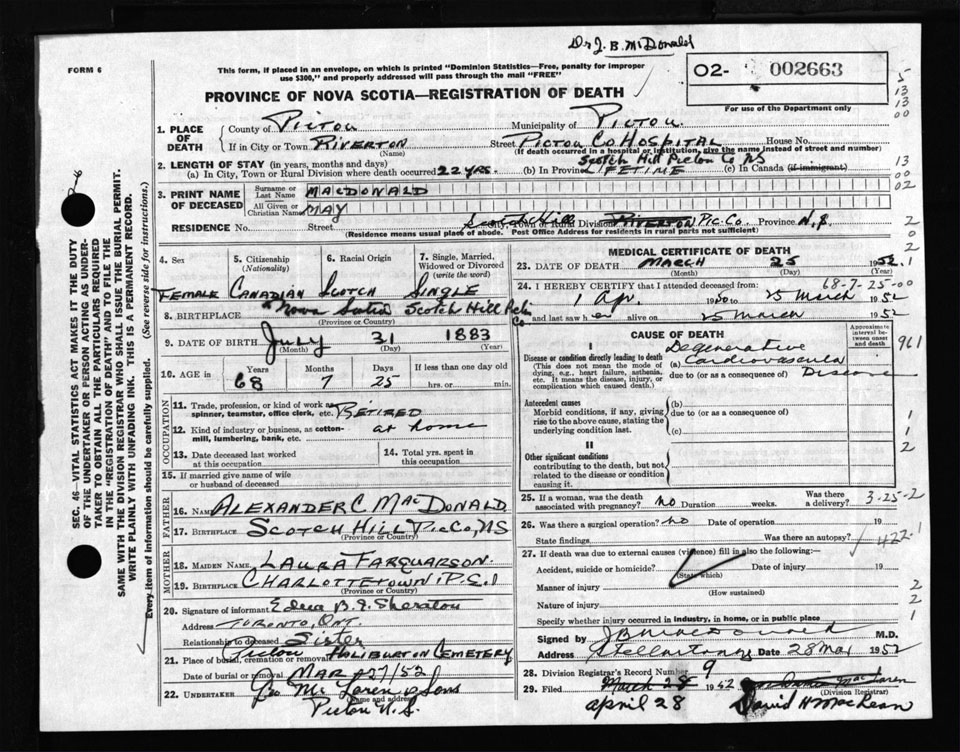 Dr J. B. McDonald
FORM 6
This form, if placed in an envelope, on which is printed "Dominion Statistics—Free, penalty for improper use $300," and properly addressed will pass through the mail "FREE"
02- 002663
For use of the Department only
PROVINCE OF NOVA SCOTIA—REGISTRATION OF DEATH
5
13
13
00
1. PLACE OF DEATH
County of Pictou Municipality of Pictou
If in City or Town Riverton (Name) Street Pictou Co Hospital House No.
(If death occurred in a hospital or institution, give the name instead of street and number)
Scotch Hill Pictou Co NS
2. LENGTH OF STAY (in years, months and days)
(a) In City, Town or Rural Division where death occurred 22 yrs. (b) In Province Lifetime (c) In Canada (if immigrant)
13
00
02
3. PRINT NAME OF DECEASED
Surname or Last Name MacDonald
All Given or Christian Names May
RESIDENCE No. Street Scotch Hill City, Town or Rural Division Riverton Pic. Co. Province N.S.
(Residence means usual place of abode. Post Office Address for residents in rural parts not sufficient)
2
0
2
1
4. Sex Female
5. Citizenship (Nationality) Canadian
6. Racial Origin Scotch
7. Single, Married, Widowed or Divorced (write the word) Single
8. BIRTHPLACE Nova Scotia Scotch Hill Co
(Province or Country)
9. DATE OF BIRTH July (Month) 31 (Day) 1883 (Year)
10. AGE in Years 68 Months 7 Days 25 If less than one day old hrs. or min.
OCCUPATION
11. Trade, profession, or kind of work as spinner, teamster, office clerk, etc. Retired
12. Kind of industry or business, as cotton-mill, lumbering, bank, etc. at home
13. Date deceased last worked at this occupation
14. Total yrs. spent in this occupation
15. If married give name of wife or husband of deceased
FATHER
16. Name Alexander C. MacDonald
17. Birthplace Scotch Hill Pic Co, NS
(Province or Country)
MOTHER
18. Maiden Name Laura Farquarson
19. Birthplace Charlottetown P.E.I
(Province or Country)
20. Signature of informant Edna B. Sheraton
Address Toronto, Ont.
Relationship to deceased Sister
21. Place of burial, cremation or removal Pictou Haliburton Cemetery
Date of burial or removal Mar 27/52
22. UNDERTAKER Geo McLaren & Sons
(Name and address)
Pictou N.S.
MEDICAL CERTIFICATE OF DEATH
23. DATE OF DEATH March (Month) 25 (Day) 1952 (Year)
24. I HEREBY CERTIFY that I attended deceased from: 68-7-25-00
1 Apr. 1950 to 25 March 1952
and last saw her alive on 25 March 1952
CAUSE OF DEATH
Approximate interval between onset and death
I
Disease or condition directly leading to death
(This does not mean the mode of dying, e.g., heart failure, asthenia, etc. It means the disease, injury, or complication which caused death.)
(a) Degenerative Cardiovascula
due to (or as a consequence of) Disease
Antecedent causes
Morbid conditions, if any, giving rise to the above cause, stating the underlying condition last.
(b)
due to (or as a consequence of)
(c)
1
1
2
II
Other significant conditions
contributing to the death, but not related to the disease or condition causing it.
25. If a woman, was the death associated with pregnancy? no Duration weeks. Was there a delivery? 3-25-2
26. Was there a surgical operation? no Date of operation 19
State findings Was there an autopsy? 422.1
27. If death was due to external causes (violence) fill in also the following:—
Accident, suicide or homicide? (State which) Date of injury 19
Manner of injury (How sustained) 2
Nature of injury 2
Specify whether injury occurred in industry, in home, or in public place 1
Signed by J B MacDonald M.D.
Address Stellarton Date 28 Mar 1952
28. Division Registrar's Record Number 9
29. Filed March 28 1952
(Division Registrar)
April 28 David H MacLean
SEC. 46—VITAL STATISTICS ACT MAKES IT THE DUTY OF THE UNDERTAKER OR PERSON ACTING AS UNDERTAKER TO OBTAIN ALL THE PARTICULARS REQUIRED IN THE "REGISTRATION OF DEATH" AND TO FILE THE SAME WITH THE DIVISION REGISTRAR WHO SHALL ISSUE THE BURIAL PERMIT.
WRITE PLAINLY WITH UNFADING INK. THIS IS A PERMANENT RECORD.
Every item of information should be carefully supplied. (See reverse side for instructions.)